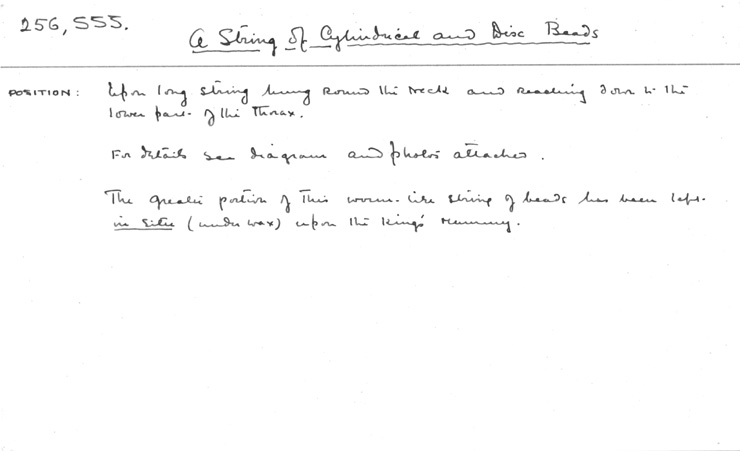 256, SSS.
A String of Cylindrical and Disc Beads
POSITION: Upon long string hung round the neck and reaching down to the
lower part of the Thorax.
For details see diagram and photos attached.
The greater portion of this worm-like string of beads has been left
in situ (under wax) upon the King's mummy.